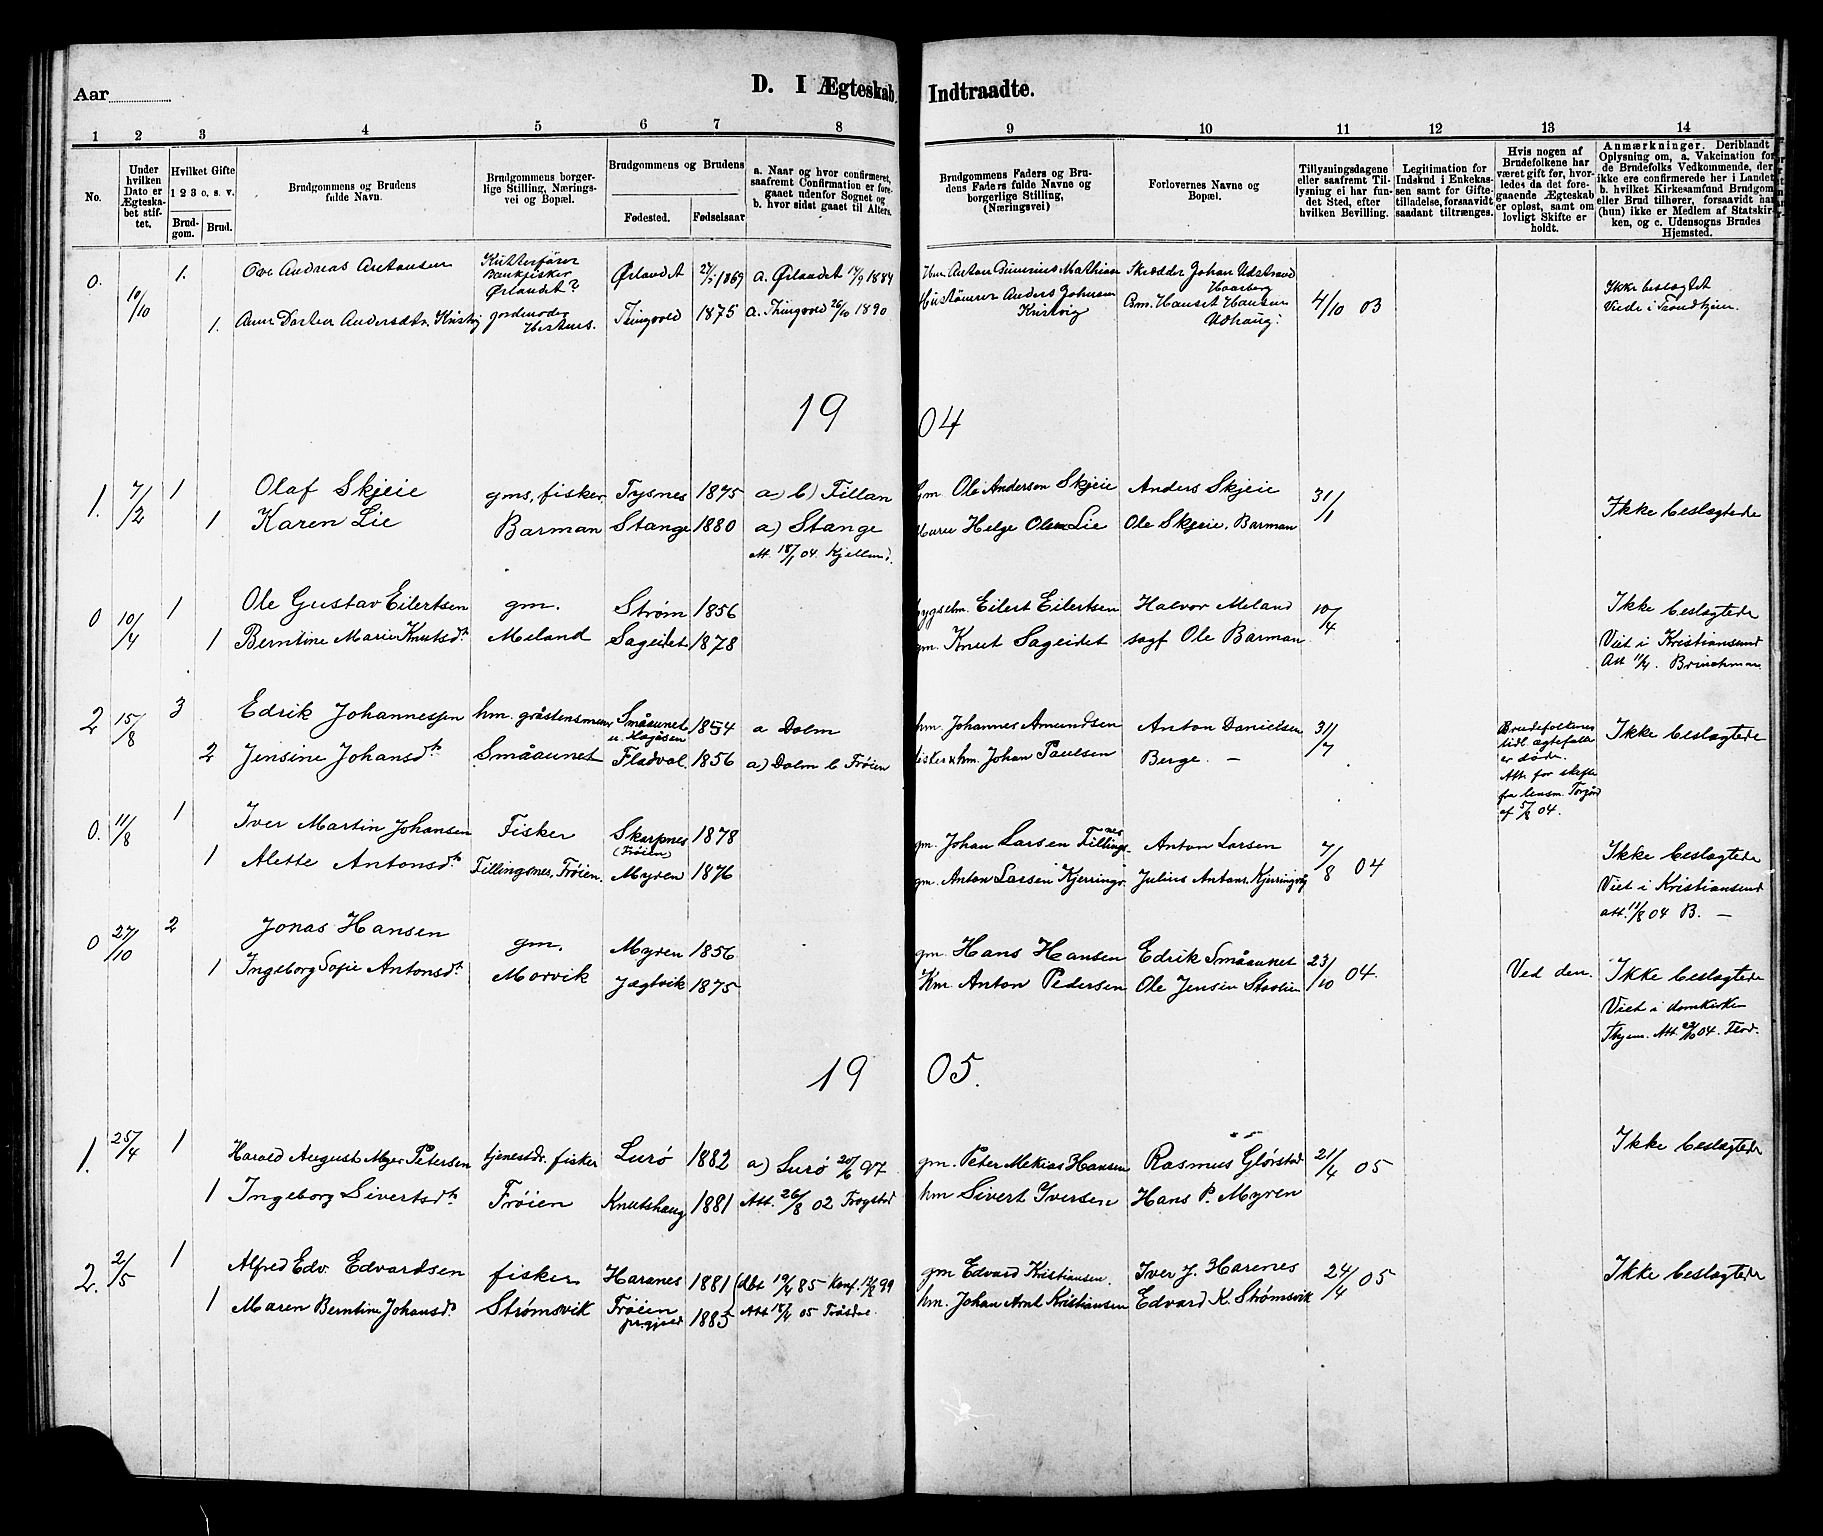 Aar
D. I Ægteskab Indtraadte.
1 2 3 4 5 6 7 8 9 10 11 12 13 14
No.
Under hvilken Dato er Ægteskabet stiftet.
Hvilket Gifte 1 2 3 o. s. v.
Brudgom.
Brud.
Brudgommens og Brudens fulde Navn.
Brudgommens borgerlige Stilling, Næringsvei og Bopæl.
Brudgommens og Brudens
Fødested.
Fødselsaar
a. Naar og hvor confirmeret, saafremt Confirmation er foregaaet udenfor Sognet og b. hvor sidst gaaet til Alters.
Brudgommens Faders og Brudens Faders fulde Navne og borgerlige Stilling, (Næringsvei)
Forlovernes Navne og Bopæl.
Tillysningsdagene eller saafremt Tillysning ei har fundet Sted, efter hvilken Bevilling.
Legitimation for Indskud i Enkekassen samt for Giftetilladelse, forsaavidt saadant tiltrænges.
Hvis nogen af Brudefolkene har været gift før, hvorledes da det foregaaende Ægteskab er opløst, samt om lovligt Skifte er holdt.
Anmærkninger. Deriblandt Oplysning om, a. Vakcination for de Brudefolks Vedkommende, der ikke ere confirmerede her i Landet, b. hvilket Kirkesamfund Brudgom eller Brud tilhører, forsaavidt han (hun) ikke er Medlem af Statskirken, og c. Udensogns Brudes Hjemsted.
0. 10/10 1. Ove Andreas Ørlandet 27/5 1869 a. Ørlandet 14/9 1884 Skrædder Johan Udstrand Haarberg Ikke beslægtet
1. Andersdtr. Kristvig Thingvold 1875 a. Thingvold 26/10 1890 Anders Johnsen Kristvig Hansen Udhaug. 4/10 03 Viede i Trondhjem.
1904
1. 7/2 1 Olaf Skjeie gms, fisker Tysnes 1875 a) b) Fillan Gm Ole Anderson Skjeie Anders Skjeie 31/1
1 Karen Lie Barman Stange 1880 a) Stange Helge Olsen Lie Ole Skjeie, Barman Ikke beslægtede
att. 18/1 04.
0 10/4 1 Ole Gustav Eilertsen gm. Strøm 1856 Eilert Eilertsen Halvor Meland 10/4 Ikke beslægtede
1 Berntine Marie Knutsdtr Meland Sageidet 1878 gm. Knut Sageidet Ole Barman Viet i Kristiansund
Att 11/4. Brinchman
2 15/8 3 Edrik Johannessen hm. Småaunet 1854 a Dolm hm. Johannes Amundsen Anton Danielsen 31/7 Brudefolkenes tidl. ægtefæller er døde. Ikke beslægtede
2 Jensine Johansdtr Småaunet Fladval 1856 a) Dolm b Frøien hm. Johan Paulsen Berge. —
Att. for skifte fra lensm. af 5/8 04.
0. 11/8 1 Iver Martin Johansen Fisker Skarpnes (Frøien) 1878 gm. Johan Larsen Fillingsnes Anton Larsen 7/8 04 Ikke beslægtede
1 Alette Antonsdtr Fillingsnes, Frøien. Myren 1876 gm. Anton Larsen Kjerringv. Julius Antons. Kjerringvåg Viet i Kristiansund
att. 11/8 04 B. —
0 27/10 2 Jonas Hansen gm. Myren 1856 gm. Hans Hansen Edrik Småaunet 23/10 04 Ved død. Ikke beslægtede
1 Ingeborg Sofie Antonsdtr Morvik Jægtvik 1875 Km. Anton Pedersen Ole Jensen Viet i domkirken
Thjem. Att. 04.
1905.
1. 25/4 1 Harald August Myer Petersen tjenestdr. fisker Lurø 1882 a) Lurø 20/6 97 gm. Peter Mekias Hansen Rasmus Glørstad 21/4 05 Ikke beslægtede
1 Ingeborg Sivertsdtr Frøien Knutshaug 1881 Att. 26/8 02 Frogstad hm Sivert Iversen Hans P. Myren
2. 2/5 1 Alfred Edv. Edvardsen fisker Haranes 1881 (dbt 19/4 85 Konf. 99 gm Edvard Kristiansen. Iver J. Harenes 24/4 05 Ikke beslægtede
1 Maren Berntine Johansdtr Strømsvik Frøien prgjeld 1885 Att 18/4 05 hm. Johan Arnt Kristiansen Edvard K. Strømsvik